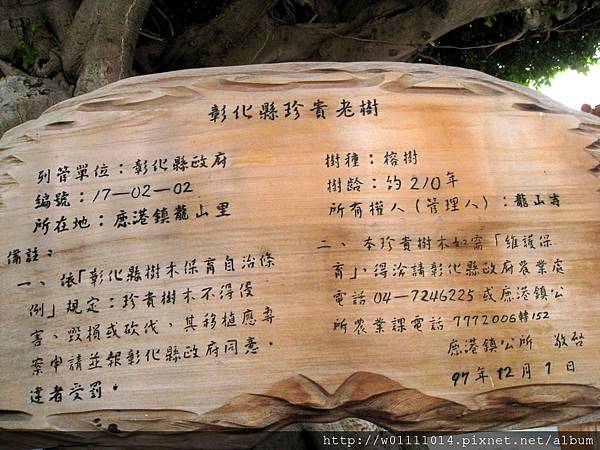 彰化縣珍貴老樹
列管單位：彰化縣政府
編號：17—02—02
所在地：鹿港鎮龍山里
樹種：榕樹
樹齡：約210年
所有權人（管理人）：龍山寺
備註：
一、依「彰化縣樹木保育自治條
例」規定：珍貴樹木不得侵
害、毀損或砍伐，其移植應專
案申請並報彰化縣政府同意。
違者受罰。
二、本珍貴樹木如需「維護保
育」，得洽請彰化縣政府農業處
電話04—7246225或鹿港鎮公
所農業課電話7772006轉152
鹿港鎮公所 敬啓
97年12月1日
http://w01111014.pixnet.net/album